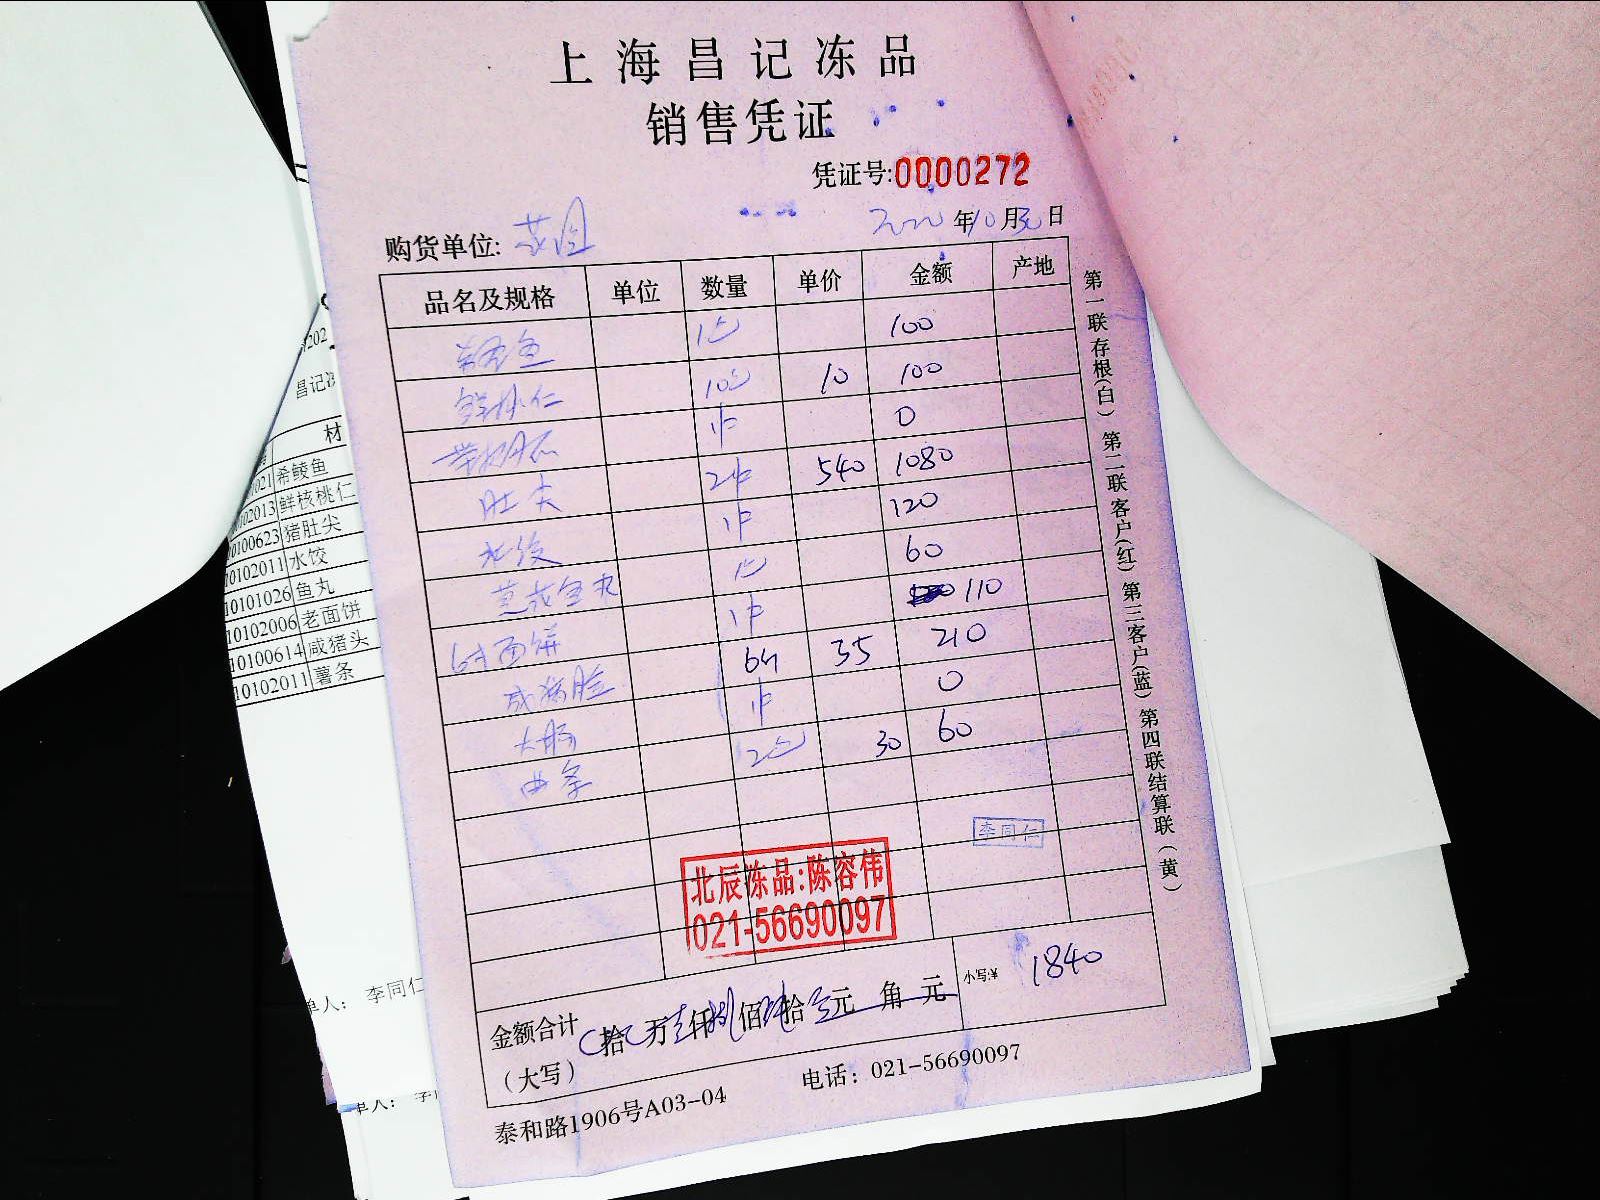 上海昌记冻品
销售凭证
凭证号:0000272
购货单位: 菜园 2020年10月30日
品名及规格 单位 数量 单价 金额 产地
鱼 1包 100
鲜桃仁 10包 10 100
1件 0
肚尖 2件 540 1080
水饺 1件 120
鱼丸 1包 60
面饼 1件 110
咸猪脸 6斤 35 210
大肠 1件 0
薯条 2包 30 60
李同仁
北辰冻品:陈容伟
021-56690097
金额合计
(大写)
拾 万 仟 佰 拾 元 角 元
小写:¥ 1840
泰和路1906号A03-04
电话: 021-56690097
第一联存根(白) 第二联客户(红) 第三客户(蓝) 第四联结算联(黄)
202
昌记冻
材
021 希鲮鱼
02013 鲜核桃仁
10100623 猪肚尖
10102011 水饺
10101026 鱼丸
10102006 老面饼
10100614 咸猪头
10102011 薯条
单人: 李同仁
单人: 李